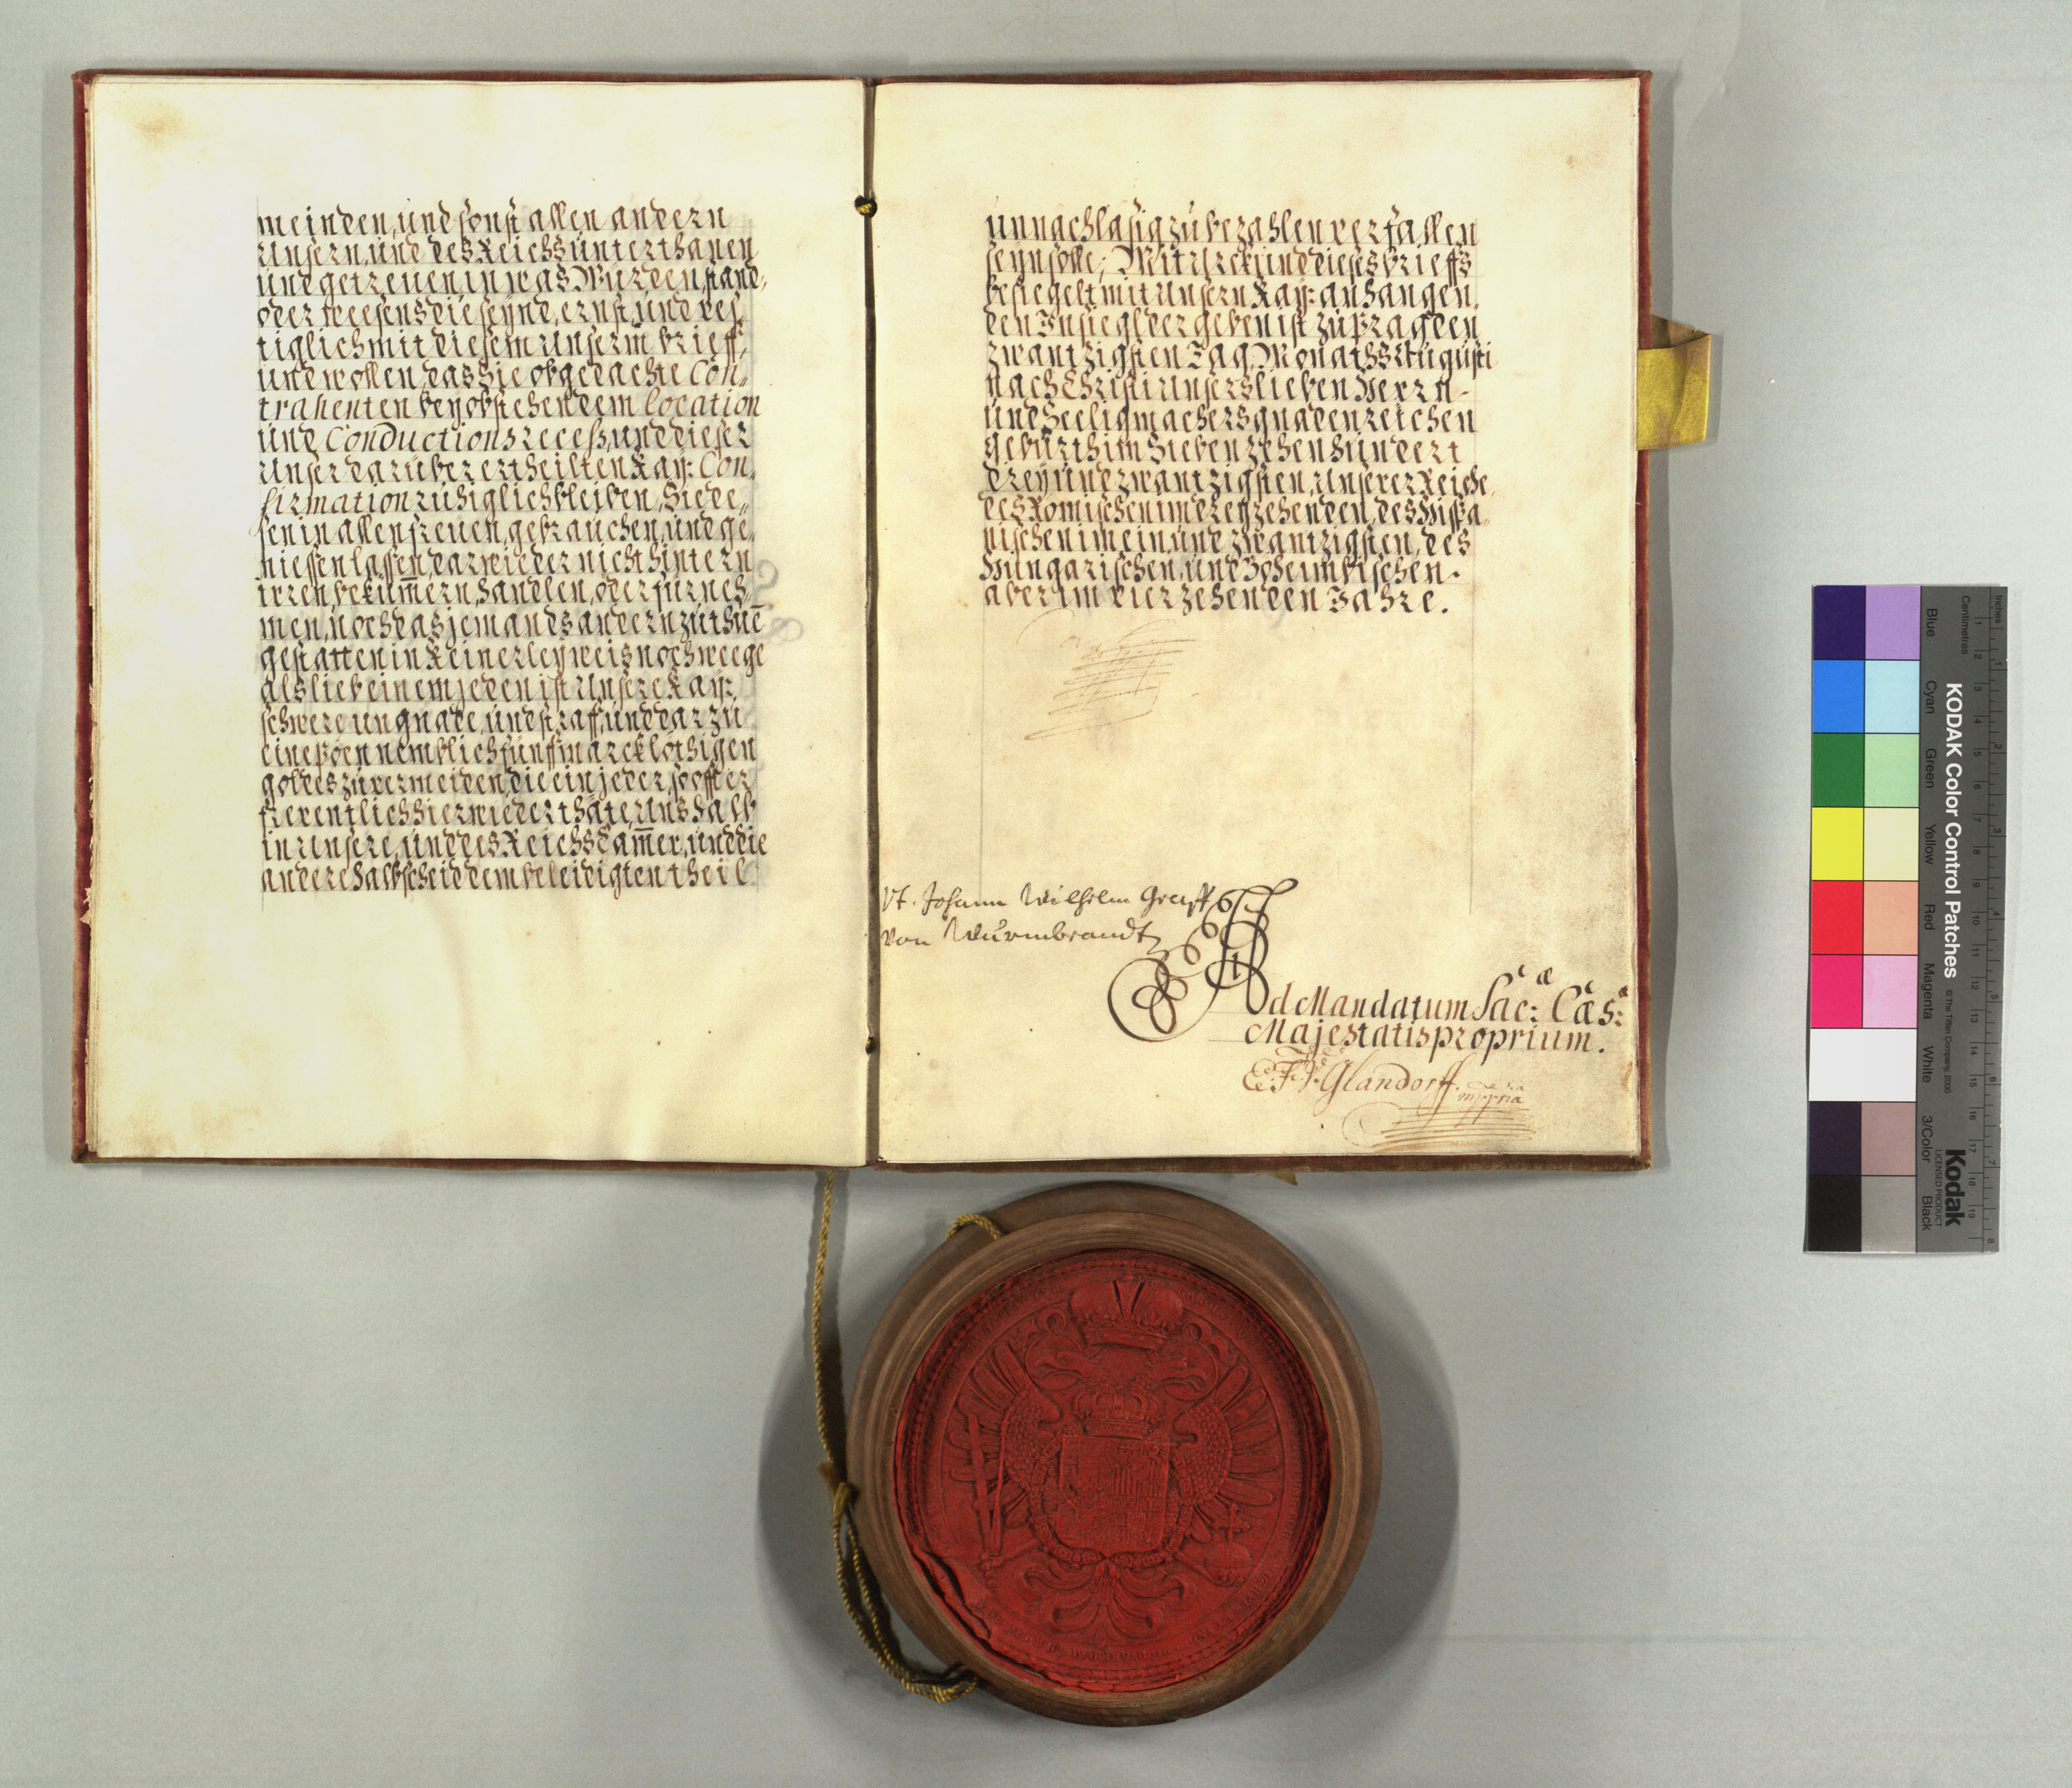 meinden, und sonst allen andern
Unsern, und des Reichs unterthanen
und getreuen, in was Würden, stand,
oder weesens die seynd, ernst, und ves,
tiglich mit diesem Unserm brieff,
und wollen, das Sie obgedachte Con„
trahenten bey obstehendem Location
und Conductions recess, und dieser
Unser darüber ertheilten Kay: Con„
firmation ruhiglich bleiben, Sie de„
sen in allen freuen, gebrauchen, und ge„
niessen lassen, darwieder nicht hintern
irren, beküm̅ern, handlen, oder fürneh„
men, noch das jemands andern zu thue̅
gestatten in Keinerley weis noch weege
als lieb einem jeden ist Unsere Kay:
schwere ungnade, und straff, und darzu
eine poen nemblich fünff marck löthigen
goldes zu vermeiden, die ein jeder, so offt er
freventlich hierwieder thäte, Uns halb
in Unsere, und des Reichs Cam̅er, und die
andere halbscheid dem beleidigten theil
unnachlasig zu bezahlen verfallen
seyn solle; Mit Urkund dieses brieffs
besiegelt mit Unsern Kay: anhangen,
den Insiegl der geben ist zu Prag den
zwantzigsten Tag Monaths Augusti
nach Christi Unsers lieben Herrn
und Seeligmachers gnadenreichen
geburth im Siebenzehenhundert
drey und zwantzigsten, Unserer Reiche
des Römischen im dreyzehenden, des Hispa„
nischen im ein und zwantzigsten, des
Hungarischen, und Böheimbischen.
aber im vierzehenden Jahre.
Vt. Johann Wilhelm Graff
von Wurmbrandt
Ad Mandatum Sac:ᵃᵉ Cæs:ᵃᵉ
Majestatis proprium.
E. F. v. Glandorff. mppria
Inches
Centimetres
Blue
Cyan
Green
Yellow
Red
Magenta
White
3/Color
Black
KODAK Color Control Patches
© The Tiffen Company, 2000
Kodak
LICENSED PRODUCT